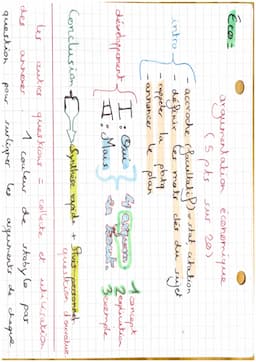 Éco:
argumentation économique
(5 pts sur 20)
intro
- accroche (facultatif) → stat, citation
- définir les mots clés du sujet
- rappeler la pbtq
- annoncer le plan
développement
I: Oui
II: Mais
1 concept
2 explication
3 exemple
Conclusion
Synthèse rapide +
question d'ouverture
Les autres questions = collecte et utilisation
des annexes 1 couleur de stabylo par
question pour surligner les arguments de chaque